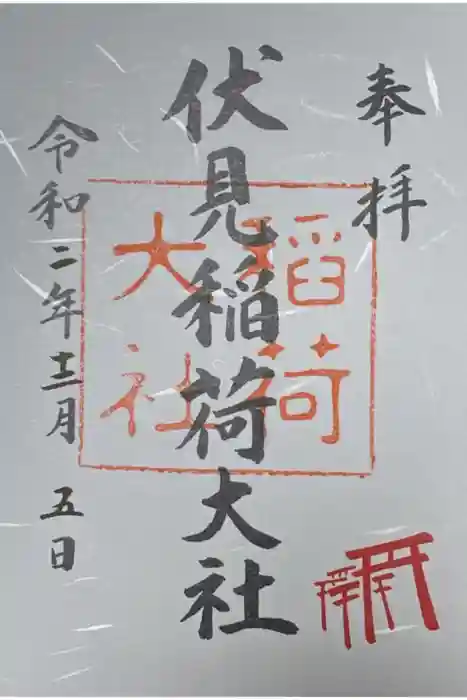 奉拝
伏見稲荷大社
稲荷
大社
令和二年十二月 五日